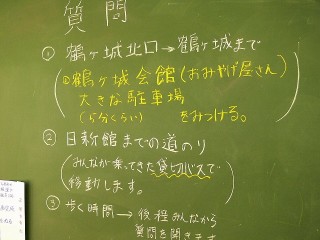 質問
① 鶴ヶ城北口→鶴ヶ城まで
(①鶴ヶ城会館(おみやげ屋さん)
大きな駐車場
(5分くらい) をみつける。
② 日新館までの道のり
(みんなが乗ってきた貸切バスで
移動します。
③ 歩く時間→後程みんなから
質問を聞きます